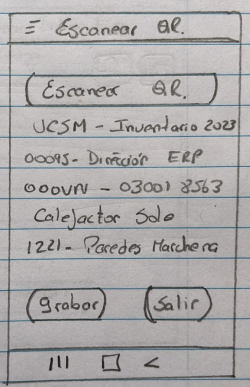 Escanear QR.
Escanear QR.
UCSM - Inventario 2023
00095 - Dirección ERP
000VN - 03001 8563
Calefactor Sole
1221 - Paredes Marchena
Grabar Salir